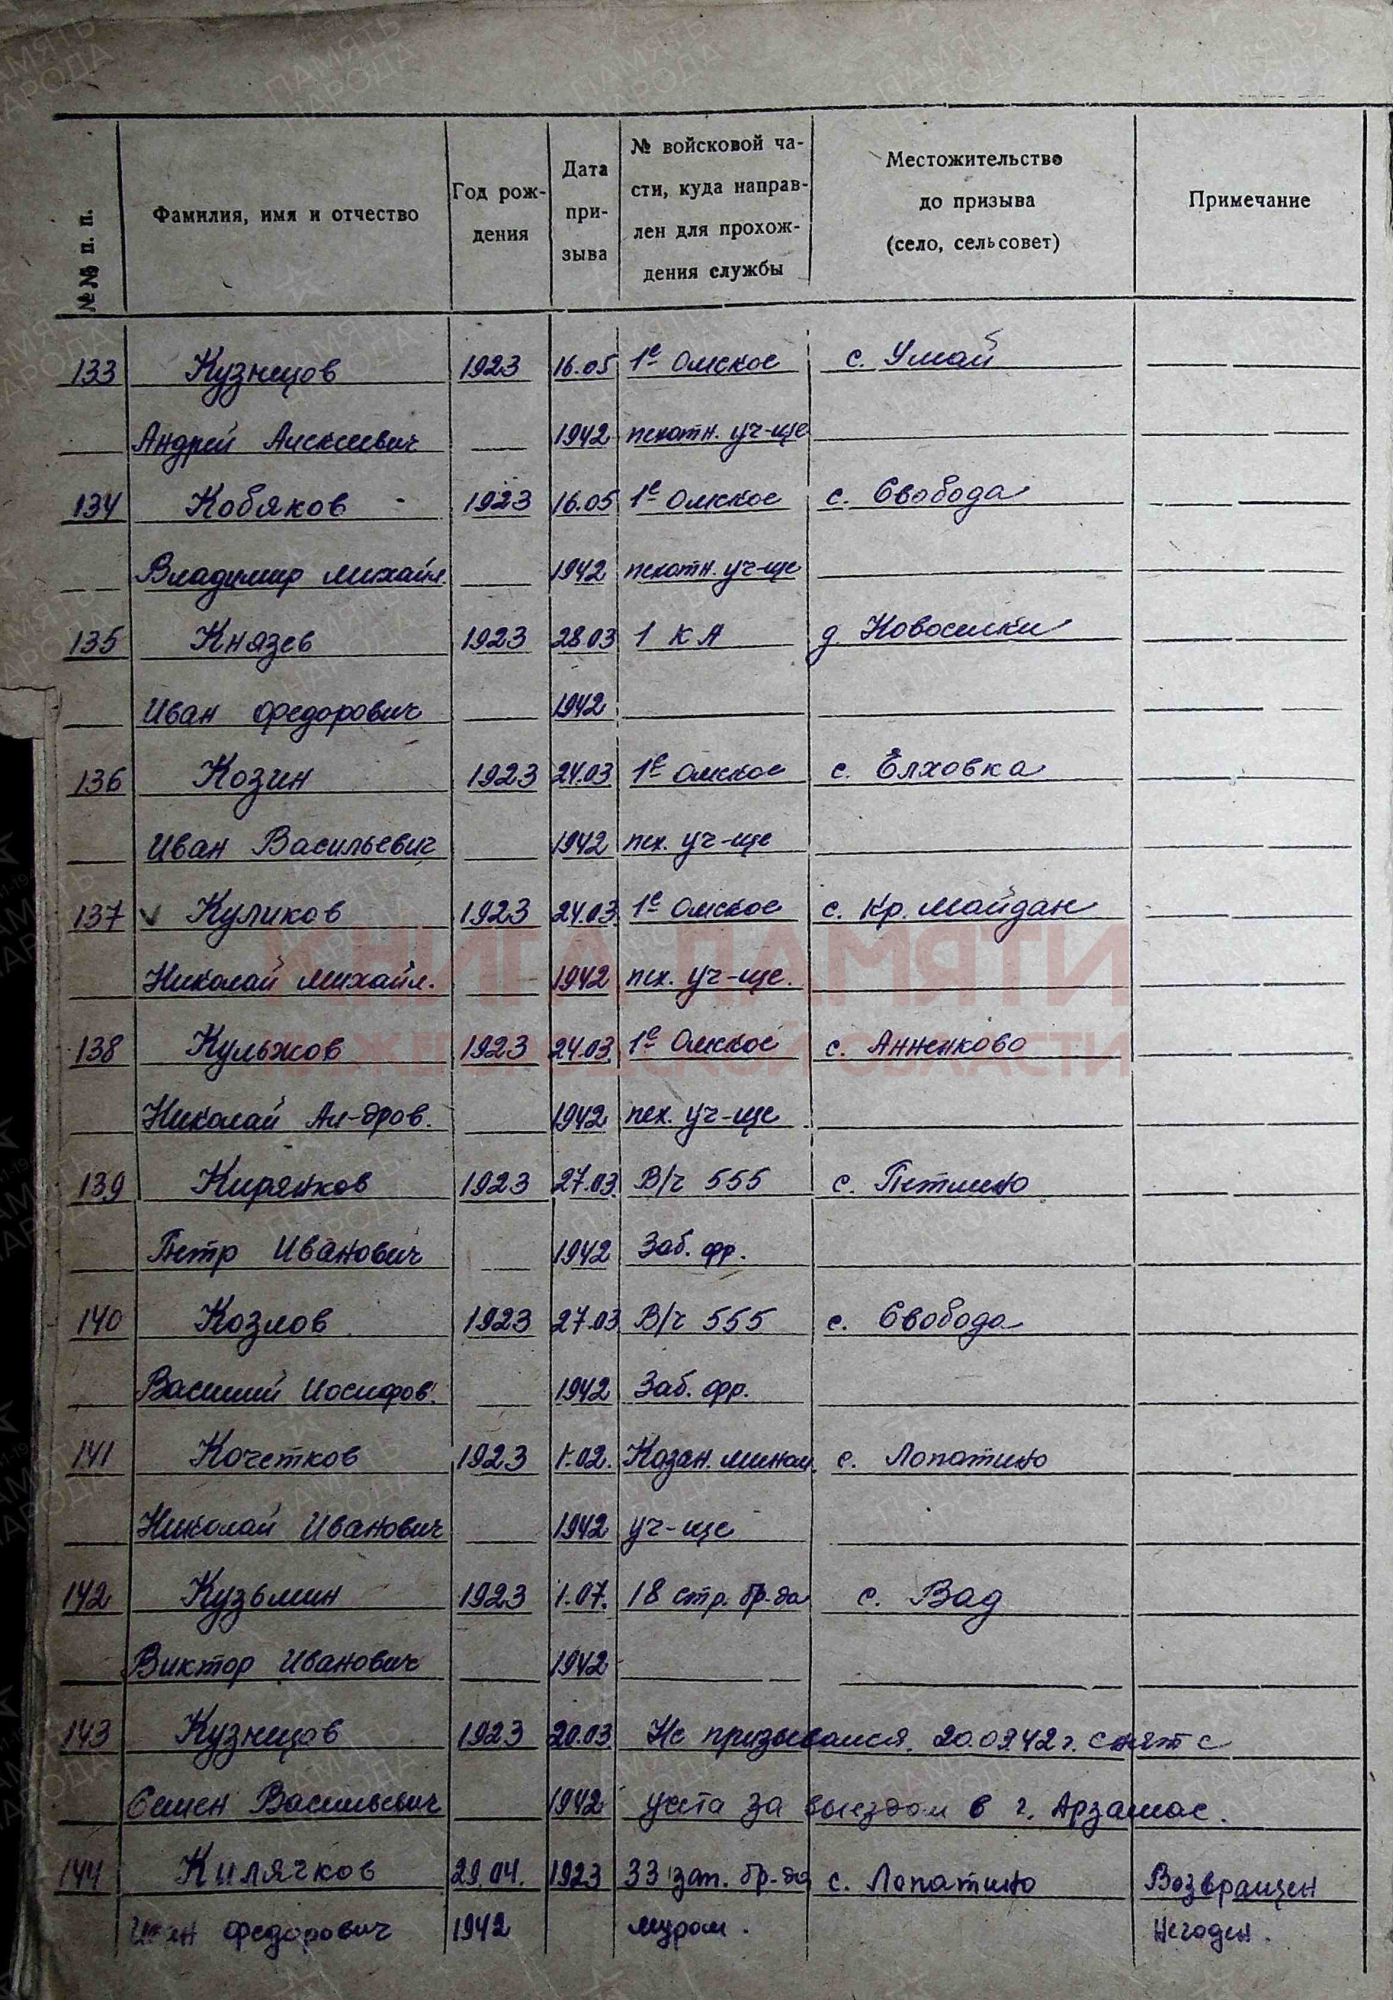 №№ п. п. Фамилия, имя и отчество Год рож-дения Дата при-зыва № войсковой ча-сти, куда направ-лен для прохож-дения службы Местожительство до призыва (село, сельсовет) Примечание
133 Кузнецов 1923 16.05 1е Омское с. Умай
Андрей Алексеевич 1942 пехотн. уч-ще
134 Кобяков 1923 16.05 1е Омское с. Свобода
Владимир Михайл. 1942 пехотн. уч-ще
135 Князев 1923 28.03 1 КА д Новоселки
Иван Федорович 1942
136 Козин 1923 24.03 1е Омское с. Елховка
Иван Васильевич 1942 пех. уч-ще
137 Куликов 1923 24.03. 1е Омское с. Кр. Майдан
Николай Михайл. 1942 пех. уч-ще.
138 Кульжов 1923 24.03. 1е Омское с. Анненково
Николай Ал-дров. 1942 пех. уч-ще
139 Кирянков 1923 27.03. В/ч 555 с. Петлино
Петр Иванович 1942 Заб. фр.
140 Козлов 1923 27.03 В/ч 555 с. Свобода
Василий Иосифов. 1942 Заб. фр.
141 Кочетков 1923 1.02. Казан. мином. с. Лопатино
Николай Иванович 1942 уч-ще
142 Кузьмин 1923 1.07. 18 стр. бр-да с. Вад
Виктор Иванович 1942
143 Кузнецов 1923 20.03. Не призывался. 20.0342 г. снят с
Семен Васильевич 1942 учета за выездом в г. Арзамас.
144 Килячков 29.04. 1923 33 зап. бр-да с. Лопатино Возвращен
Иван Федорович 1942 муром. Негоден.
КНИГА ПАМЯТИ
НИЖЕГОРОДСКОЙ ОБЛАСТИ
ПАМЯТЬ
НАРОДА